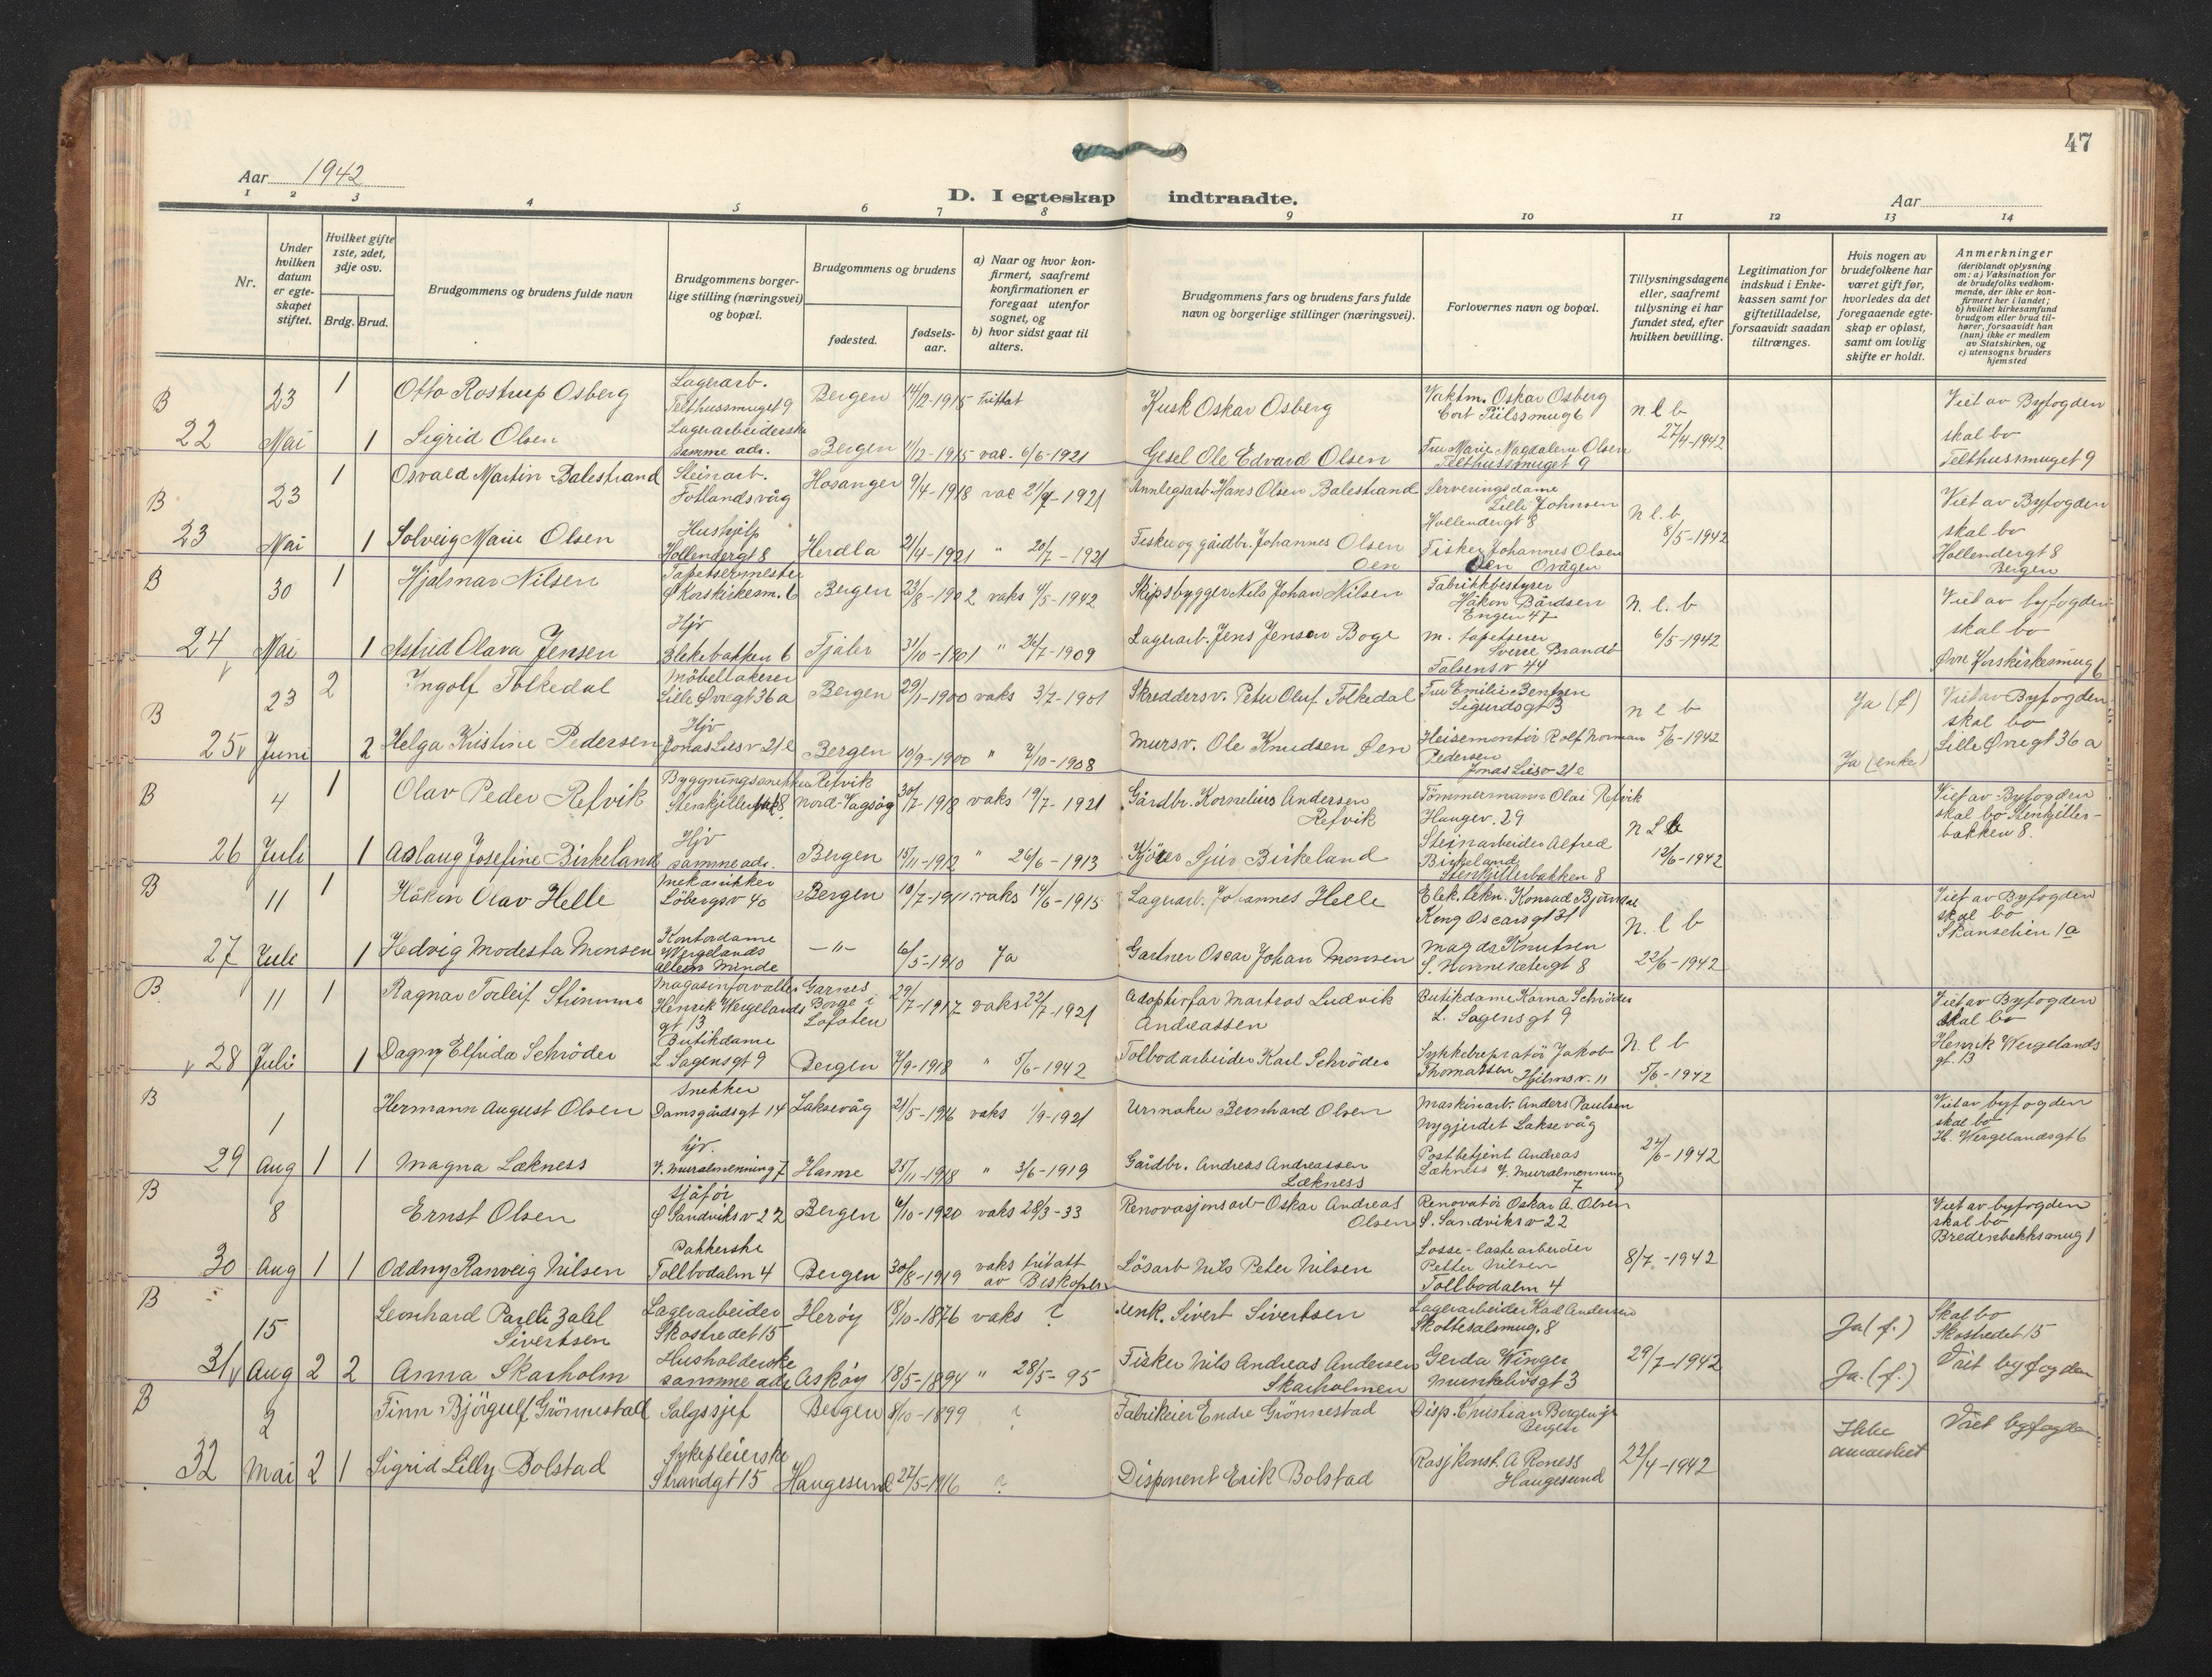 47
Aar 1942
D. I egteskap indtraadte.
Aar
1 2 3 4 5 6 7 8 9 10 11 12 13 14
Nr.
Under hvilken datum er egteskapet stiftet.
Hvilket gifte 1ste, 2det, 3dje osv.
Brdg. Brud.
Brudgommens og brudens fulde navn
Brudgommens borgerlige stilling (næringsvei) og bopæl.
Brudgommens og brudens
fødested.
fødselsaar.
a) Naar og hvor konfirmert, saafremt konfirmationen er foregaat utenfor sognet, og
b) hvor sidst gaat til alters.
Brudgommens fars og brudens fars fulde navn og borgerlige stillinger (næringsvei).
Forlovernes navn og bopæl.
Tillysningsdagene eller, saafremt tillysning ei har fundet sted, efter hvilken bevilling.
Legitimation for indskud i Enkekassen samt for giftetilladelse, forsaavidt saadan tiltrænges.
Hvis nogen av brudefolkene har været gift før, hvorledes da det foregaaende egteskap er opløst, samt om lovlig skifte er holdt.
Anmerkninger
(deriblandt oplysning om: a) Vaksination for de brudefolks vedkommende, der ikke er konfirmert her i landet; b) hvilket kirkesamfund brudgom eller brud tilhører, forsaavidt han (hun) ikke er medlem av Statskirken, og c) utensogns bruders hjemsted
B 22 23 Mai 1 Otto Rostrup Osberg Lagerarb. Telthussmuget 9 Bergen 14/12-1915 Fritatt Kusk Oskar Osberg Vaktm. Oskar Osberg Cort Piilssmug 6 n l b 27/4-1942 Viet av Byfogden
1 Sigrid Olsen Lagerarbeiderske samme adr. Bergen 11/12-1915 vac. 6/6-1921 Gesel Ole Edvard Olsen Fru Marie Magdalene Olsen Telthussmuget 9 skal bo Telthussmuget 9
B 23 23 Mai 1 Osvald Martin Balestrand Steinarb. Fotlandsvåg Hosanger 9/4-1918 vac 21/9-1921 Annlegsarb. Hans Olsen Balestrand Serveringsdame Lilli Johnsen Hollendergt 8 n l. b. 8/5-1942 Viet av Byfogden
1 Solveig Marie Olsen Hushjelp Hollendergt 8 Herdla 21/4-1921 " 20/7-1921 Fisker og gårdbr. Johannes Olsen Oen Fisker Johannes Olsen Oen Ovågen skal bo Hollendergt 8 Bergen
B 24 30 Mai 1 Hjalmar Nilsen Tapetsermester Ø Korskirkesm. 6 Bergen 23/8-1902 vaks 4/5-1942 Skipsbygger Nils Johan Nilsen Fabrikkbestyrer Håkon Bårdsen Engen 47 N. l. b 6/5-1942 Viet av byfogden
1 Astrid Olava Jensen Hjv Blekebakken 6 Fjaler 31/10-1901 " 26/7-1909 Lagerarb. Jens Jensen Boge m. tapetserer Sverre Brandt Falsensv 44 skal bo Øvre Korskirkesmug 6
B 25 23 Juni 2 Ingolf Tolkedal Möbellakerer Lille Øvregt 36a Bergen 29/1-1900 vaks 3/7-1901 Skreddersv. Peter Oluf Folkedal Fru Emilie Bentzen Sigurdsgt 3 n l b 5/6-1942 Ja (f) Viet av Byfogden
2 Helga Kristine Pedersen Hjv Jonas Liesv 21e Bergen 10/9-1900 " 7/10-1908 Mursv. Ole Knudsen Øen Heisemontör Rolf Norman Pedersen Jonas Liesv 21e Ja (enke) skal bo Lille Øvregt 36a
B 26 4 Juli 1 Olav Peder Refvik Refvik Nord-Vagsøy 30/7-1918 vaks 19/7-1921 Gårdbr. Kornelius Andersen Refvik Tömmermann Olai Refvik Haugev. 29 n l b 12/6-1942 Viet av Byfogden
1 Aslaug Josefine Birkeland Hjv samme adr. Bergen 15/11-1912 " 26/6-1913 Kjörer Sjur Birkeland Steinarbeider Alfred Birkeland Stenkjellerbakken 8 skal bo Stenkjellerbakken 8.
B 27 11 Juli 1 Håkon Olav Helle Mekanikker Löbergsv 40 Bergen 10/7-1911 vaks 14/6-1915 Lagerarb. Johannes Helle Elek. tekn. Konrad Björndal Kong Oscarsgt 31 n. l b 22/6-1942 Viet av Byfogden
1 Hedvig Modesta Monsen Kontordame Wergelands alleen Minde —"— 6/5-1910 Ja Gartner Oscar Johan Monsen Magda Knutsen S. Nonnesetergt 8 skal bo Skanselien 1a
B 28 11 Juli 1 Ragnar Torleif Strömme Magasinforvalter Henrik Wergelands gt 13 Garnes Borge i Lofoten 29/7-1917 vaks 22/7-1921 Adoptivfar Martias Ludvik Andreassen Butikdame Karna Schröder L. Sagensgt 9 N. l b 5/6-1942 Viet av Byfogden
1 Dagny Elfrida Schröder Butikdame L Sagensgt 9 Bergen 7/9-1918 " 5/6-1942 Tolbodarbeider Karl Schröder Jakob Thomassen Hjelmsv. 11 skal bo Henrik Wergelands gt. 13
B 29 1 Aug 1 Hermann August Olsen Snekker Damsgårdsgt 14 Laksevåg 21/5-1916 vaks 1/9-1921 Urmaker Bernhard Olsen Maskinarb. Anders Paulsen Nygjerdet Laksevåg 24/6-1942 Viet av byfogden
1 Magna Lækness hjv. V. Muralmenning 7 Hamre 25/11-1918 " 3/6-1919 Gårdbr. Andreas Andreassen Lækness Postbetjent Andreas Lækness V. Muralmenning 7 skal bo H. Wergelandsgt 6
B 30 8 Aug 1 Ernst Olsen Sjåför Ø Sandviksv 22 Bergen 6/10-1920 vaks 28/3-33 Renovasjonsarb Oskar Andreas Olsen Renovatör Oskar A. Olsen S. Sandviksv 22 8/7-1942 Viet av byfogden
1 Oddny Ranveig Nilsen Pakkerske Tollbodalm 4 Bergen 30/8-1919 vaks fritatt av Biskopen Lösarb Nils Peter Nilsen Losse-lastearbeider Petter Nilsen Tollbodalm 4 skal bo Bredenbekksmug 1
B 31 15 Aug 2 Leonhard Parelli Zahl Sivertsen Lagerarbeider Skostredet 15 Herøy 8/10-1876 vaks ? Sivert Sivertsen Lagerarbeider Karl Andersen Skottesalsmug. 8 29/7-1942 Ja (f.) Skal bo Skostredet 15
2 Anna Skarholm Husholderske samme adr Askøy 18/5-1894 " 28/5-95 Fisker Nils Andreas Andersen Skarholmen Gerda Winger Munkelivsgt 3 Ja. (f.) Viet byfogden
B 32 2 Mai 2 Finn Björgulf Grönnestad Salgssjef Bergen 8/10-1899 ? Fabrikeier Endre Grönnestad Disp. Christian Bergen 22/4-1942 Ikke anmerket Viet byfogden
1 Sigrid Lilly Bolstad Sykepleierske Strandgt 15 Haugesund 27/5-1916 ? Disponent Erik Bolstad A Roness Haugesund